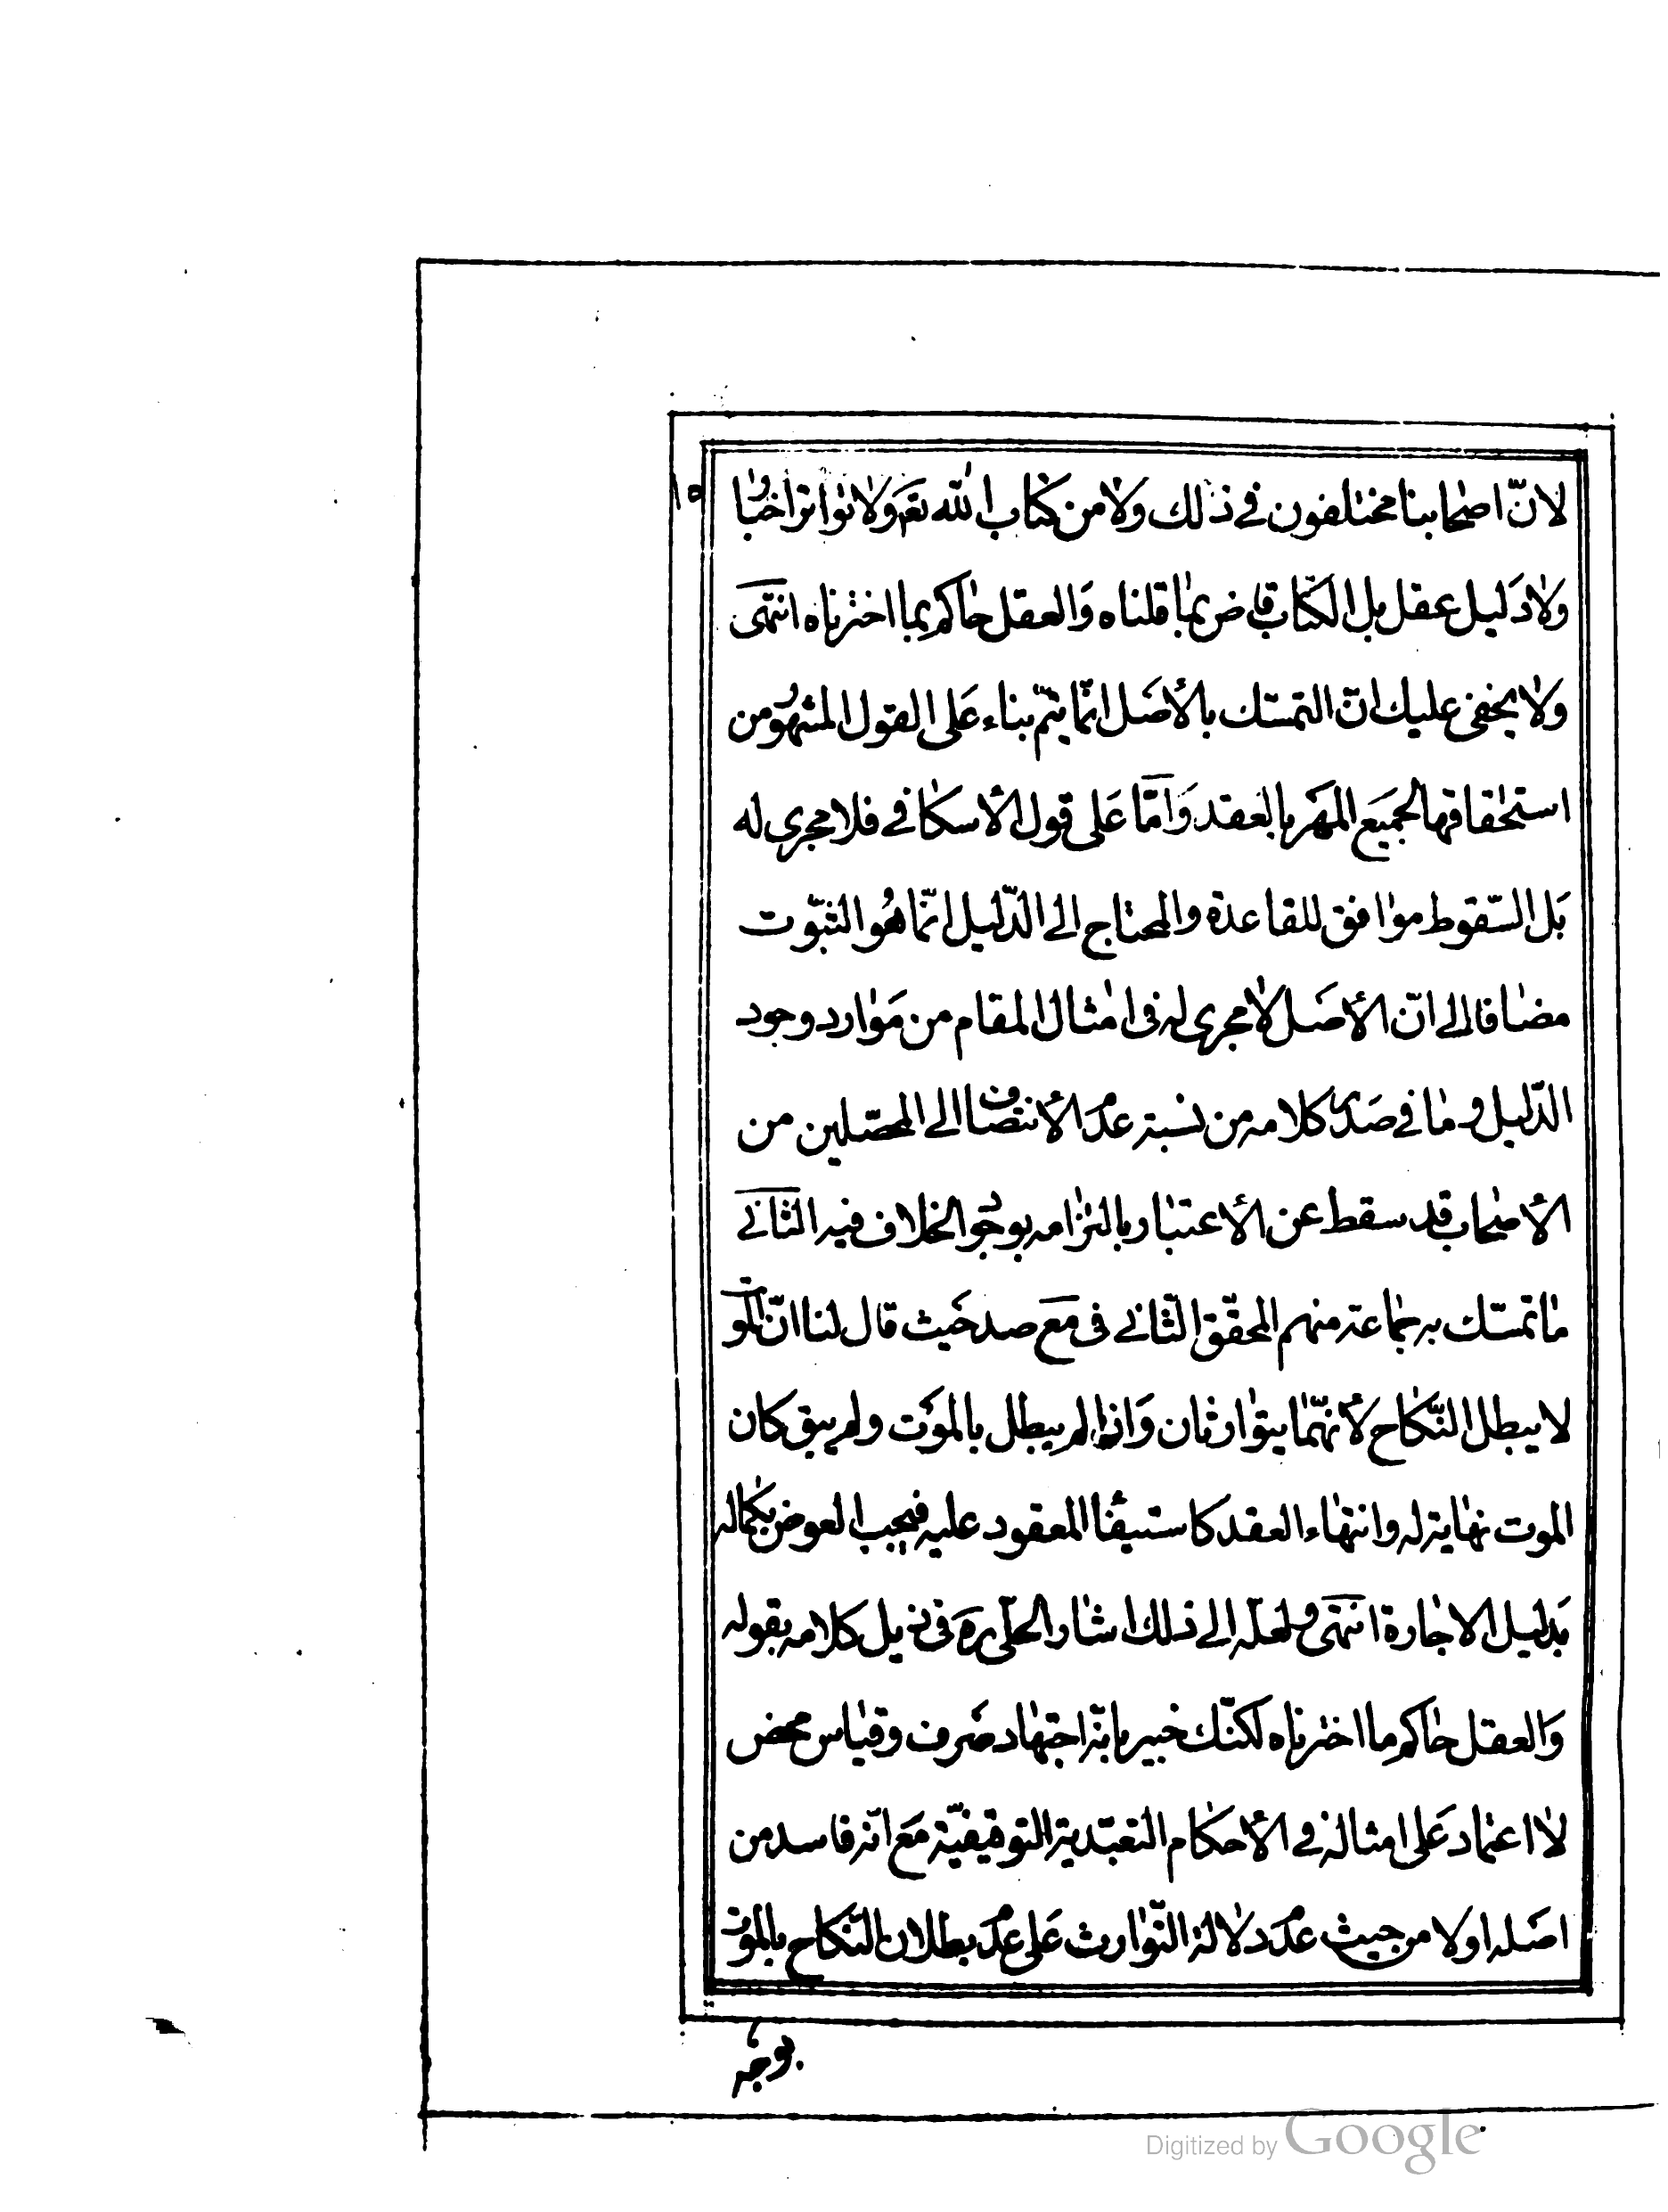 ١٥
لانّ اصحابنا مختلفون في ذلك ولا من كتاب الله تعم ولا تواتر اخبا
ولا دليل عقل بل الكتاب قاض بما قلناه والعقل حاكم بما اخترناه انتهى
ولا يخفى عليك انّ التمسّك بالأصل انّما يتمّ بناء على القول المشهور من
استحقاقها لجميع المهر بالعقد وامّا على قول الأسكافي فلا مجرى له
بل السّقوط موافق للقاعدة والمحتاج الى الدّليل انّما هو الثبّوت
مضافا الى انّ الأصل لا مجرى له في امثال المقام من موارد وجود
الدّليل وما في صدر كلامه من نسبة عدم الأنتصاف الى المحصّلين من
الأصحاب قد سقط عن الأعتبار بالتزامه بوجود الخلاف فيه الثاني
ما تمسّك به جماعة منهم المحقّق الثّاني في مع صد حيث قال لنا انّ الموت
لا يبطل النّكاح لأنّهما يتوارثان واذا لم يبطل بالموت ولم يبق كان
الموت نهاية له وانتهاء العقد كاستيفاء المعقود عليه فيجب العوض بكماله
بدليل الاجارة انتهى ولعلّه الى ذلك اشار الحلّي ره في ذيل كلامه بقوله
والعقل حاكم ما اخترناه لكنّك خبير بانّه اجتهاد صرف وقياس محض
لا اعتماد على امثاله في الأحكام التعبّدية التوقيفيّة مع انّه فاسد من
اصله اولا من حيث عدم دلالة التّوارث على عدم بطلان النّكاح بالموت
بوجه
Digitized by Google